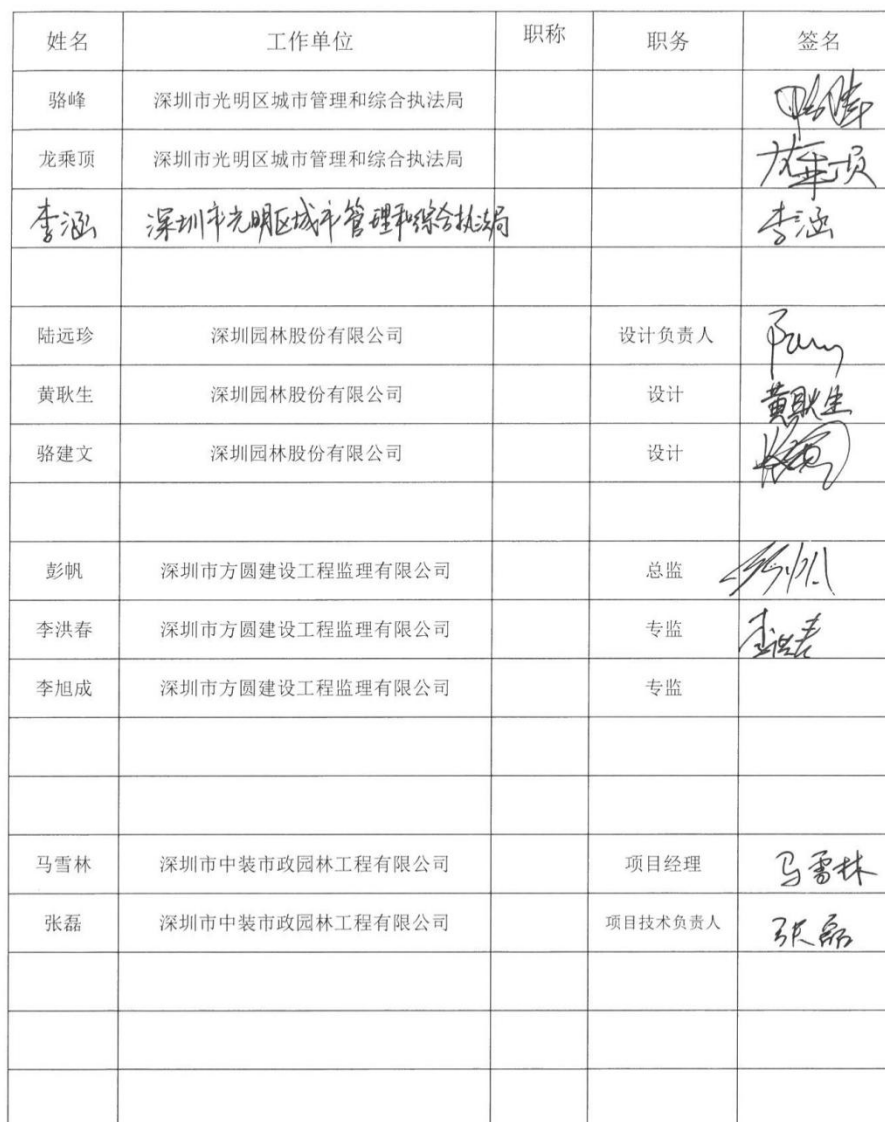 姓名 工作单位 职称 职务 签名
骆峰 深圳市光明区城市管理和综合执法局
龙乘顶 深圳市光明区城市管理和综合执法局
李涵 深圳市光明区城市管理和综合执法局 李涵
陆远珍 深圳园林股份有限公司 设计负责人
黄耿生 深圳园林股份有限公司 设计 黄耿生
骆建文 深圳园林股份有限公司 设计
彭帆 深圳市方圆建设工程监理有限公司 总监
李洪春 深圳市方圆建设工程监理有限公司 专监 李洪春
李旭成 深圳市方圆建设工程监理有限公司 专监
马雪林 深圳市中装市政园林工程有限公司 项目经理 马雪林
张磊 深圳市中装市政园林工程有限公司 项目技术负责人 张磊